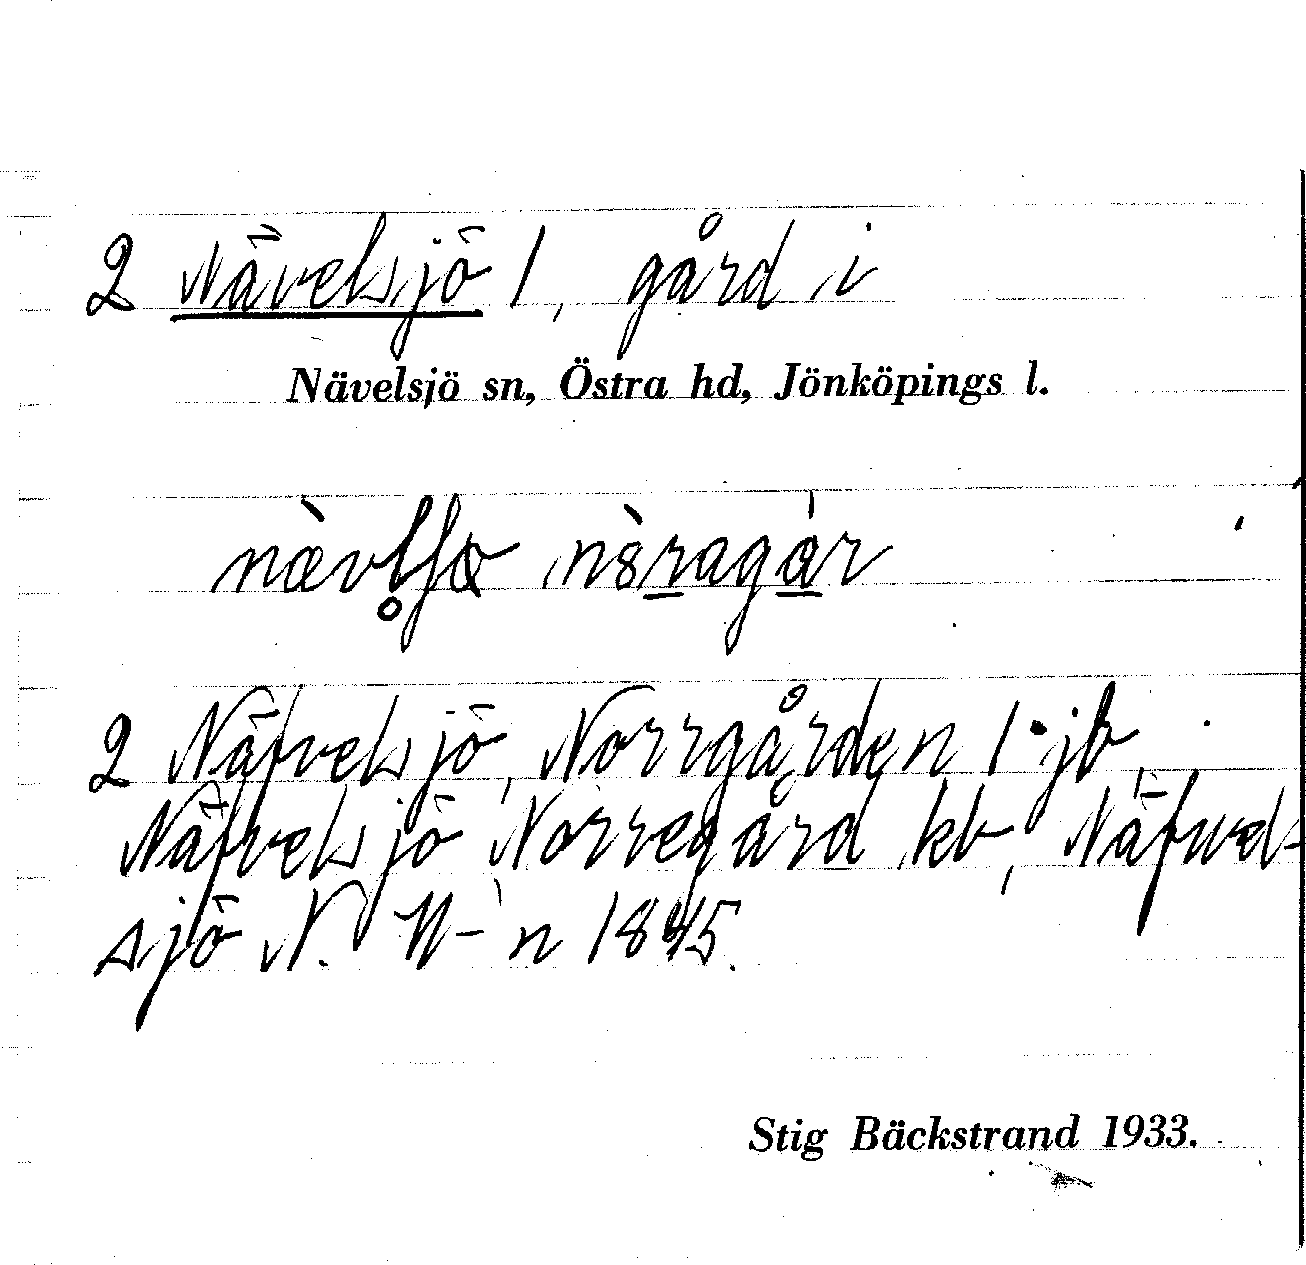 2 Nävelsjö 1, gård i
Nävelsjö sn, Östra hd, Jönköpings l.
2 Näfvelsjö, Norrgården 1 jb,
Näfvelsjö Norregård kb, Näfwel-
sjö N. N-n 1845.
Stig Bäckstrand 1933.